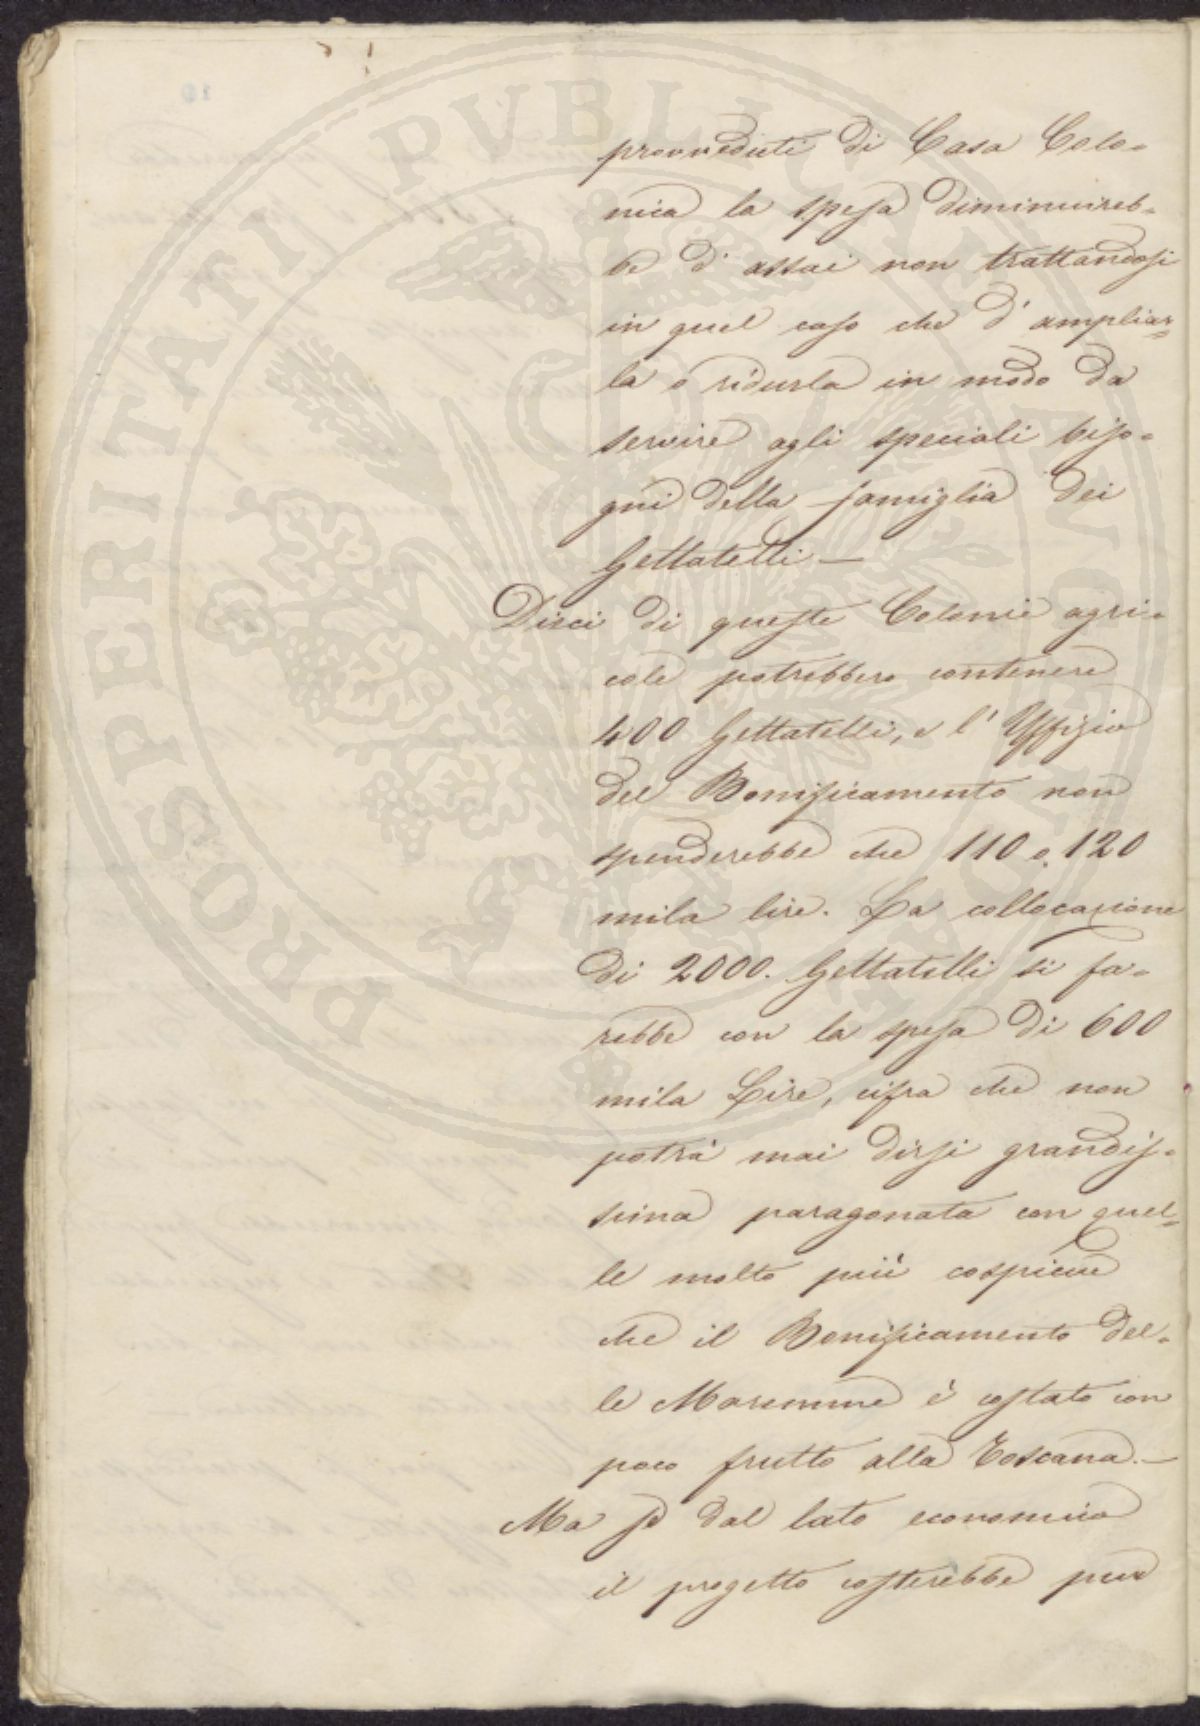 provveduti di Casa Colo=
nica la spesa diminuireb=
be d' assai non trattandosi
in quel caso che d' ampliar=
la o ridurla in modo da
servire agli speciali biso=
gni della famiglia dei
Gettatelli —
Dieci di queste Colonie agri=
cole potrebbero contenere
400 Gettatelli, e l' Uffizio
del Bonificamento non
spenderebbe che 110 o 120
mila lire. La collocazione
di 2000. Gettatelli si fa=
rebbe con la spesa di 600
mila Lire, cifra che non
potrà mai dirsi grandis=
sima paragonata con quel=
le molto più cospicue
che il Bonificamento del=
le Maremme è costato con
poco frutto alla Toscana. —
Ma se dal lato economico
il progetto costerebbe pur
PROSPERITATI PVBLICAE AVGENDAE